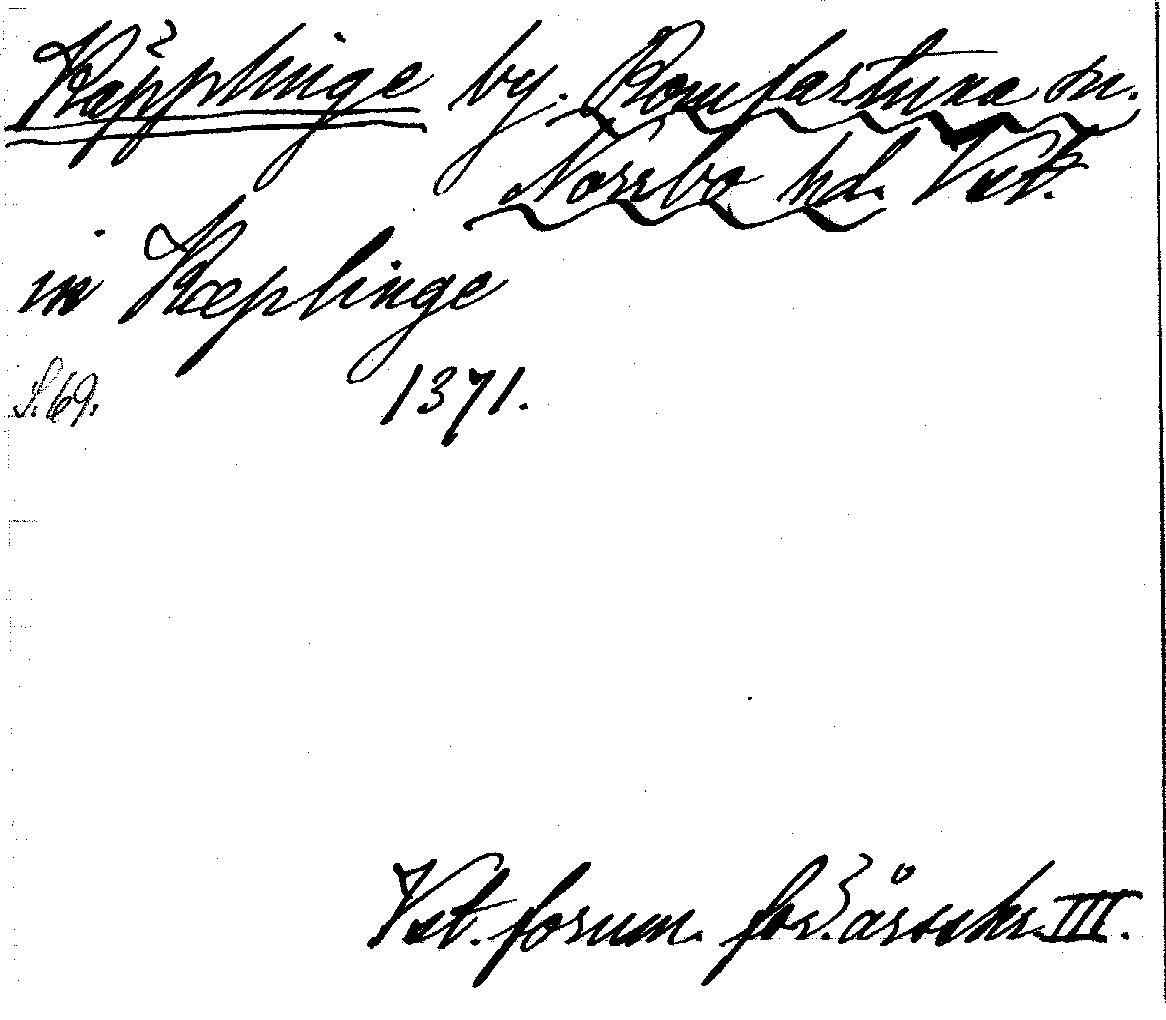 Käpplinge by. Romfartuna sn.
Norrbo hd. Vstm.
in Kæplinge
S. 69. 1371.
Vst. fornm.för:s årsskr. III.